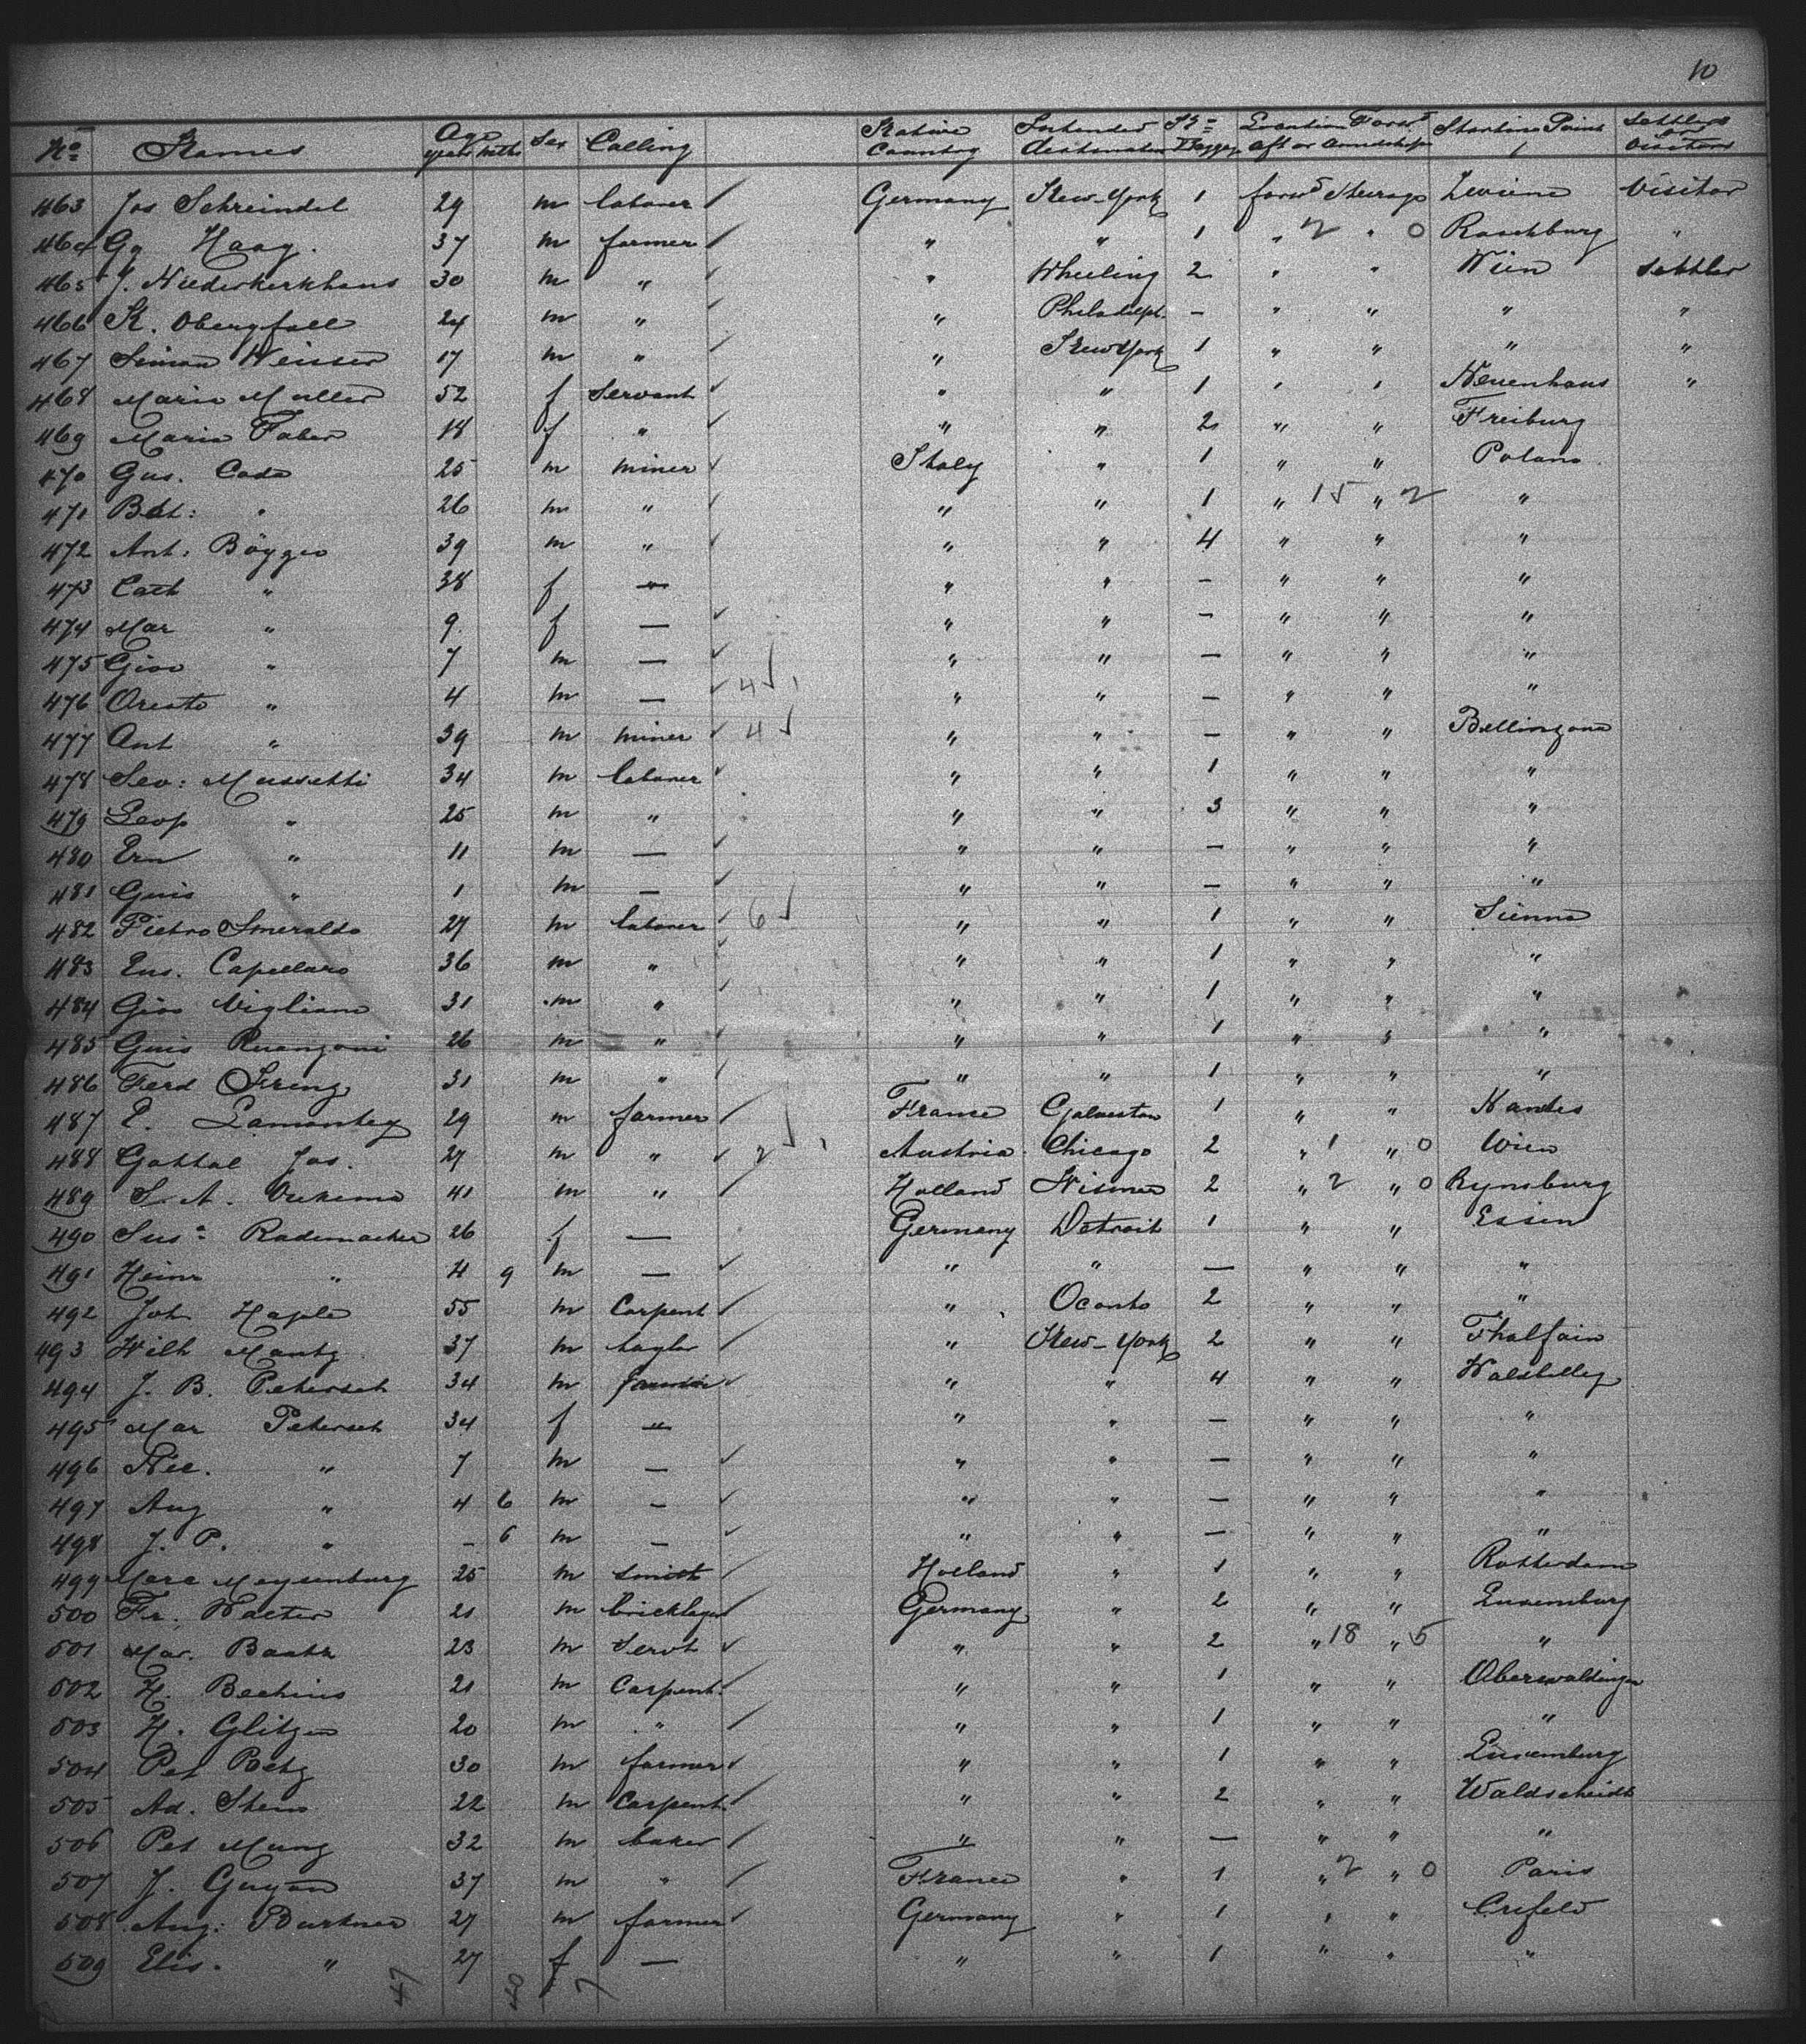 10
No Names Age years mths Sex Calling Native Country Intended destination No Bagge Location Forwd aft or amidships Starting Point Settlers or Visitors
463 Jos Schreindel 29 m laborer ✓ Germany New-York 1 forwd Steerage Visitor
464 Gg Haag. 37 m farmer ✓ " " 1 " 2 " 0 Raschburg "
465 J. Niederkerkhaus 30 m " ✓ " Wheeling 2 " " Wien Settler
466 K. Obergfall 24 m " ✓ " Philadelph. — " " " "
467 Simon Weisser 17 m " ✓ " New York 1 " " " "
468 Marie Muller 52 f Servant ✓ " " 1 " " Neuenhaus "
469 Maria Faber 18 f " ✓ " " 2 " " Freiburg
470 Gus. Coda 25 m miner ✓ Italy " 1 " " Polano
471 Bat: " 26 m " ✓ " " 1 " 15 " 2 "
472 Ant: Böggeo 39 m " ✓ " " 4 " " "
473 Cath " 38 f — " " — " " "
474 Mar " 9 f — ✓ " " — " " "
475 Giov " 7 m — ✓ " " — " " "
476 Oreste " 4 m — ✓ 4 ✓ " " — " " "
477 Ant " 39 m miner ✓ 4 ✓ " " — " " Bellinzona
478 Sev: Mussetti 34 m laborer ✓ " " 1 " " "
479 Leop " 25 m " " " 3 " " "
480 Ern " 11 m — ✓ " " — " " "
481 Guis " 1 m — ✓ " " — " " "
482 Pietro Smeraldo 27 m laborer ✓ 6 ✓ " " 1 " " Sienna
483 Eus. Capellaro 36 m " ✓ " " 1 " " "
484 Giov Vigliano 31 m " ✓ " " 1 " " "
485 Guis Ruanzoni 26 m " ✓ " " 1 " " "
486 Ferd Street 31 m " ✓ " " 1 " " "
487 E. Lamontey 29 m farmer ✓ France Galveston 1 " " Nantes
488 Gottal Jos. 27 m " ✓ 2 ✓ Austria Chicago 2 " 1 " 0 Wien
489 S. A. Oukema 41 m " ✓ Holland Wisner 2 " 2 " 0 Rynsburg
490 Susa Rademacher 26 f — Germany Detroit 1 " " Essen
491 Heinr " 4 9 m — ✓ " " — " " "
492 Joh Hagele 55 m Carpent ✓ " Oconto 2 " " "
493 Wilh Mantz 37 m taylor ✓ " New-York 2 " " Thalfain
494 J. B. Petersch 34 m farmer ✓ " " 4 " " Walsbillig
495 Mar Petersch 34 f — " " — " " "
496 Nic. " 7 m — ✓ " " — " " "
497 Aug " 4 6 m — ✓ " " — " " "
498 J. P. " — 6 m — ✓ " " — " " "
499 Marc Meysenburg 25 m smith ✓ Holland " 1 " " Rotterdam
500 Fr. Walter 21 m bricklayer ✓ Germany " 2 " " Luxemburg
501 Mar. Baatz 23 m Servt ✓ " " 2 " 18 " 5 "
502 H. Bechius 21 m Carpent. ✓ " " 1 " " Oberwaldingen
503 H. Glitzen 20 m " ✓ " " 1 " " "
504 Pet Betz 30 m farmer ✓ " " 1 " " Luxemburg
505 Ad. Stein 22 m Carpent. ✓ " " 2 " " Waldscheidt
506 Pet Mung 32 m baker ✓ " " — " " "
507 J. Guyon 37 m " ✓ France " 1 " 2 " 0 Paris
508 Aug: Burkner 27 m farmer ✓ Germany " 1 " " Crefeld
509 Elis. " 27 f — " " 1 " " "
47 40 7